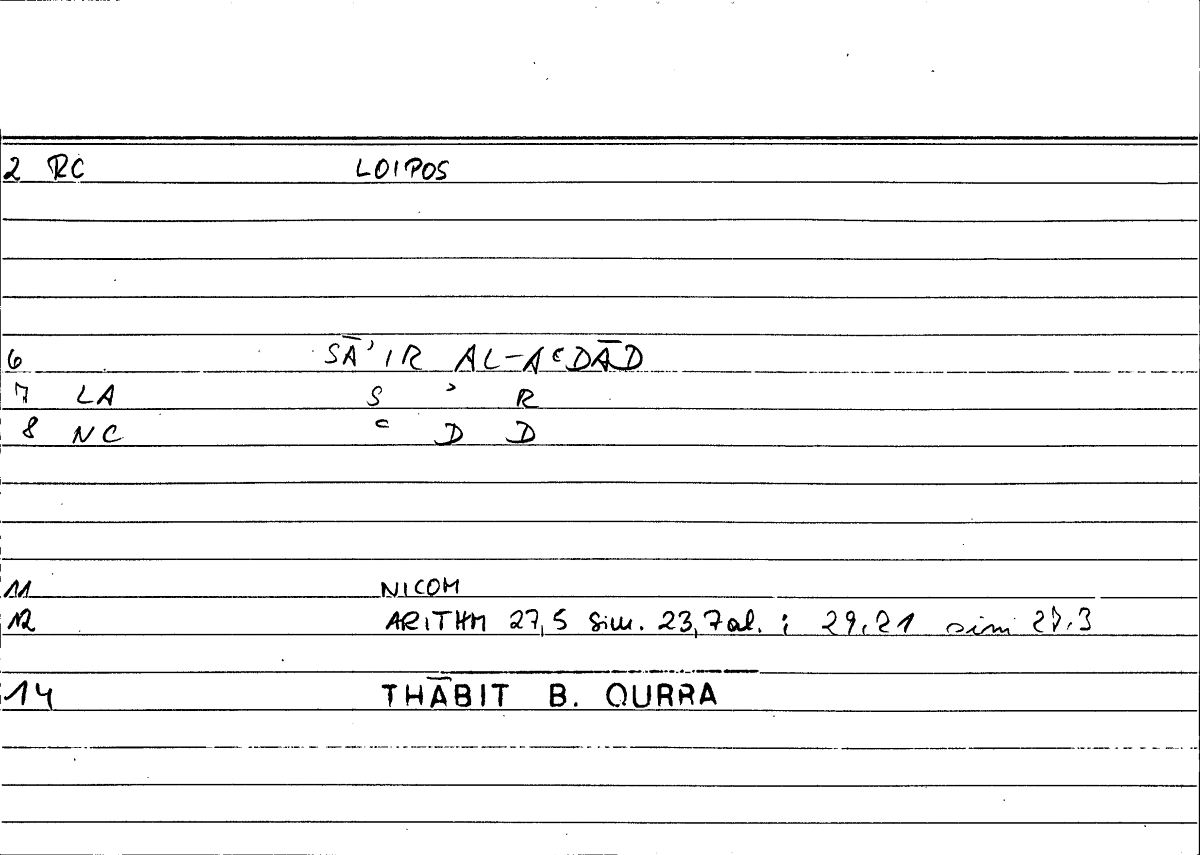 2 RC LOIPOS
6 SĀʾIR AL-AʿDĀD
7 LA S ʾ R
8 NC ʿ D D
11 NICOM
12 ARITHM 27,5 sim. 23,7 al. ; 29,21 sim 27,3
14 THĀBIT B. QURRA